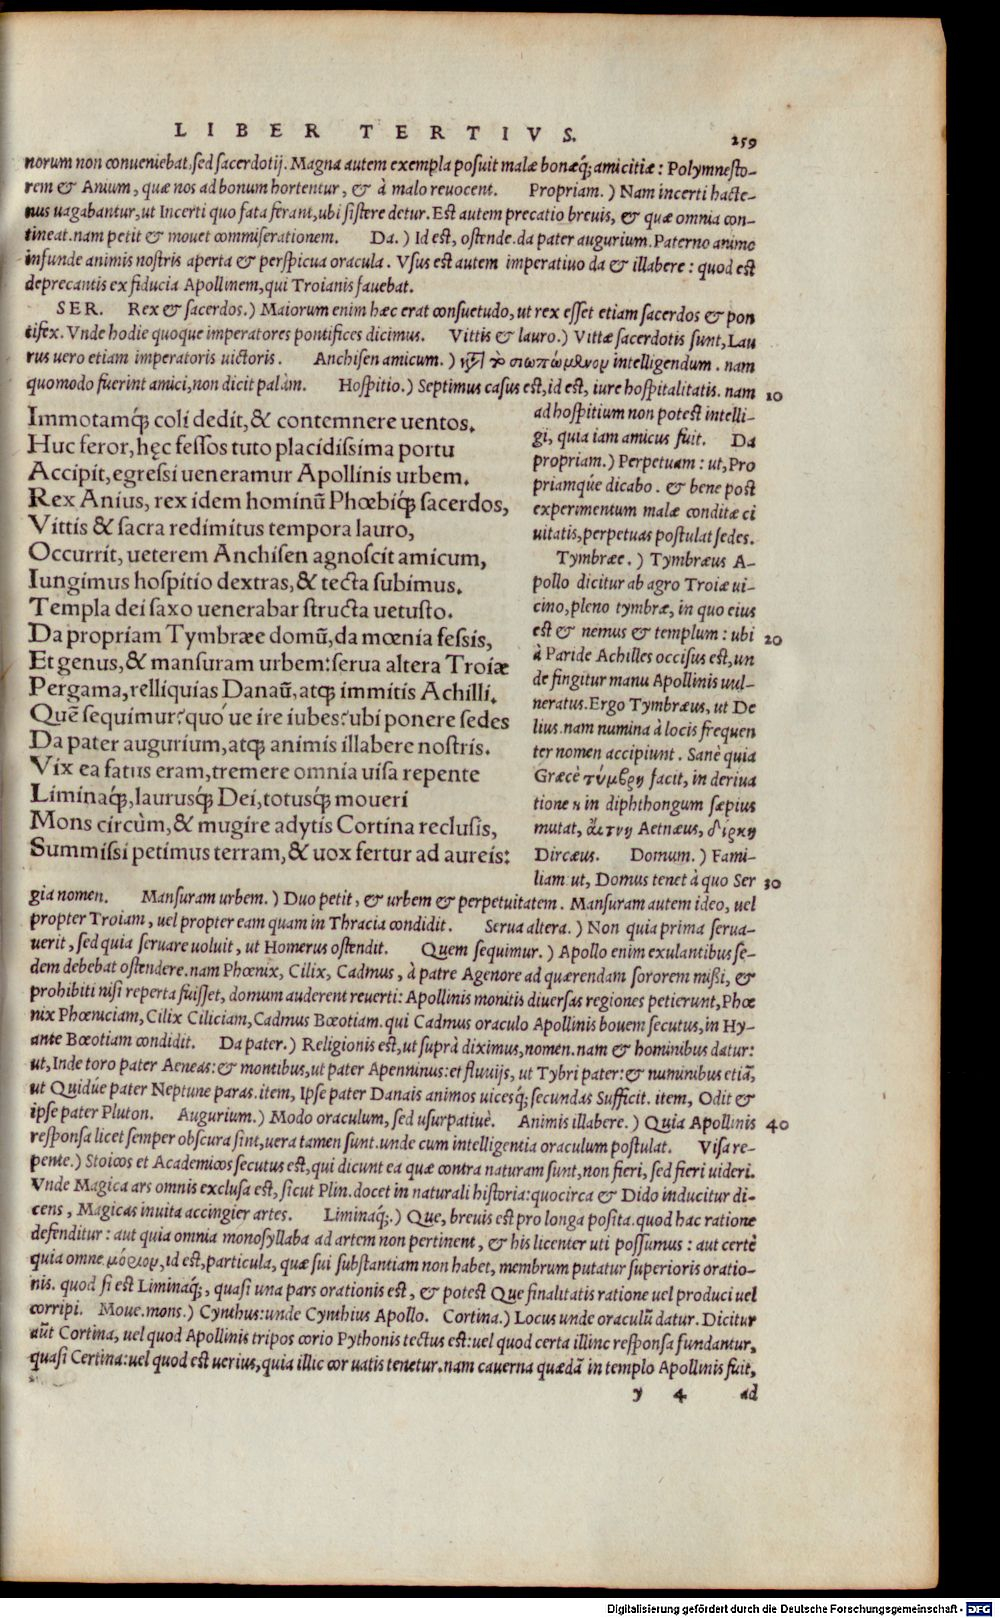 LIBER TERTIVS.
259
norum non conueniebat. sed sacerdotij. Magna autem exempla posuit malæ bonæq́; amicitiæ: Polymnesto-
rem & Anium, quæ nos ad bonum hortentur, & à malo reuocent. Propriam.) Nam incerti hacte-
nus uagabantur, ut Incerti quo fata ferant, ubi sistere detur. Est autem precatio breuis, & quæ omnia con-
tineat. nam petit & mouet commiserationem. Da.) Id est, ostende. da pater augurium. Paterno animo
infunde animis nostris aperta & perspicua oracula. Vsus est autem imperatiuo da & illabere: quod est
deprecantis ex fiducia Apollinem, qui Troianis fauebat.
SER. Rex & sacerdos.) Maiorum enim hæc erat consuetudo, ut rex esset etiam sacerdos & pon
tifex. Vnde hodie quoque imperatores pontifices dicimus. Vittis & lauro.) Vittæ sacerdotis sunt, Lau
rus uero etiam imperatoris uictoris. Anchisen amicum.) κτ̀ τὸ σιωπώμενον intelligendum. nam
quomodo fuerint amici, non dicit palàm. Hospitio.) Septimus casus est, id est, iure hospitalitatis. nam 10
Immotamq́; coli dedit, & contemnere uentos.
Huc feror, hęc fessos tuto placidissima portu
Accipit, egressi ueneramur Apollinis urbem.
Rex Anius, rex idem hominũ Phœbiq́; sacerdos,
Vittis & sacra redimitus tempora lauro,
Occurrit, ueterem Anchisen agnoscit amicum,
Iungimus hospitio dextras, & tecta subimus.
Templa dei saxo uenerabar structa uetusto.
Da propriam Tymbræe domũ, da mœnia fessis,
Et genus, & mansuram urbem: serua altera Troiæ
Pergama, relliquias Danaũ, atq; immitis Achilli.
Quẽ sequimur? quó ue ire iubes? ubi ponere sedes
Da pater augurium, atq; animis illabere nostris.
Vix ea fatus eram, tremere omnia uisa repente
Liminaq́;, laurusq́; Dei, totusq́; moueri
Mons circùm, & mugire adytis Cortina reclusis,
Summissi petimus terram, & uox fertur ad aureis:
ad hospitium non potest intelli-
gi, quia iam amicus fuit. Da
propriam.) Perpetuam: ut, Pro
priamq́ue dicabo. & bene post
experimentum malæ conditæ ci
uitatis, perpetuas postulat sedes.
Tymbræe.) Tymbræus A-
pollo dicitur ab agro Troiæ ui-
cino, pleno tymbræ, in quo eius
est & nemus & templum: ubi 20
à Paride Achilles occisus est, un
de fingitur manu Apollinis uul-
neratus. Ergo Tymbræus, ut De
lius. nam numina à locis frequen
ter nomen accipiunt. Sanè quia
Græcè τύμβρη facit, in deriua
tione η in diphthongum sæpius
mutat, ἄιτνη Aetnæus, δίρκη
Dircæus. Domum.) Fami-
liam: ut, Domus tenet à quo Ser 30
gia nomen. Mansuram urbem.) Duo petit, & urbem & perpetuitatem. Mansuram autem ideo, uel
propter Troiam, uel propter eam quam in Thracia condidit. Serua altera.) Non quia prima serua-
uerit, sed quia seruare uoluit, ut Homerus ostendit. Quem sequimur.) Apollo enim exulantibus se-
dem debebat ostendere. nam Phœnix, Cilix, Cadmus, à patre Agenore ad quærendam sororem missi, &
prohibiti nisi reperta fuisset, domum auderent reuerti: Apollinis monitis diuersas regiones petierunt, Phœ
nix Phœniciam, Cilix Ciliciam, Cadmus Bœotiam. qui Cadmus oraculo Apollinis bouem secutus, in Hy-
ante Bœotiam condidit. Da pater.) Religionis est, ut suprà diximus, nomen. nam & hominibus datur:
ut, Inde toro pater Aeneas: & montibus, ut pater Apenninus: et fluuijs, ut Tybri pater: & numinibus etiã,
ut Quidúe pater Neptune paras. item, Ipse pater Danais animos uicesq́; secundas Sufficit. item, Odit &
ipse pater Pluton. Augurium.) Modo oraculum, sed usurpatiuè. Animis illabere.) Quia Apollinis 40
responsa licet semper obscura sint, uera tamen sunt. unde cum intelligentia oraculum postulat. Visa re-
pente.) Stoicos et Academicos secutus est, qui dicunt ea quæ contra naturam sunt, non fieri, sed fieri uideri.
Vnde Magica ars omnis exclusa est, sicut Plin. docet in naturali historia: quocirca & Dido inducitur di-
cens, Magicas inuita accingier artes. Liminaq́;.) Que, breuis est pro longa posita. quod hac ratione
defenditur: aut quia omnia monosyllaba ad artem non pertinent, & his licenter uti possumus: aut certè
quia omne μόριον, id est, particula, quæ sui substantiam non habet, membrum putatur superioris oratio-
nis. quod si est Liminaq́;, quasi una pars orationis est, & potest Que finalitatis ratione uel produci uel
corripi. Moue. mons.) Cynthus: unde Cynthius Apollo. Cortina.) Locus unde oraculũ datur. Dicitur
aũt Cortina, uel quod Apollinis tripos corio Pythonis tectus est: uel quod certa illinc responsa fundantur,
quasi Certina: uel quod est uerius, quia illic cor uatis tenetur. nam cauerna quædã in templo Apollinis fuit,
y 4 ad
Digitalisierung gefördert durch die Deutsche Forschungsgemeinschaft - DFG